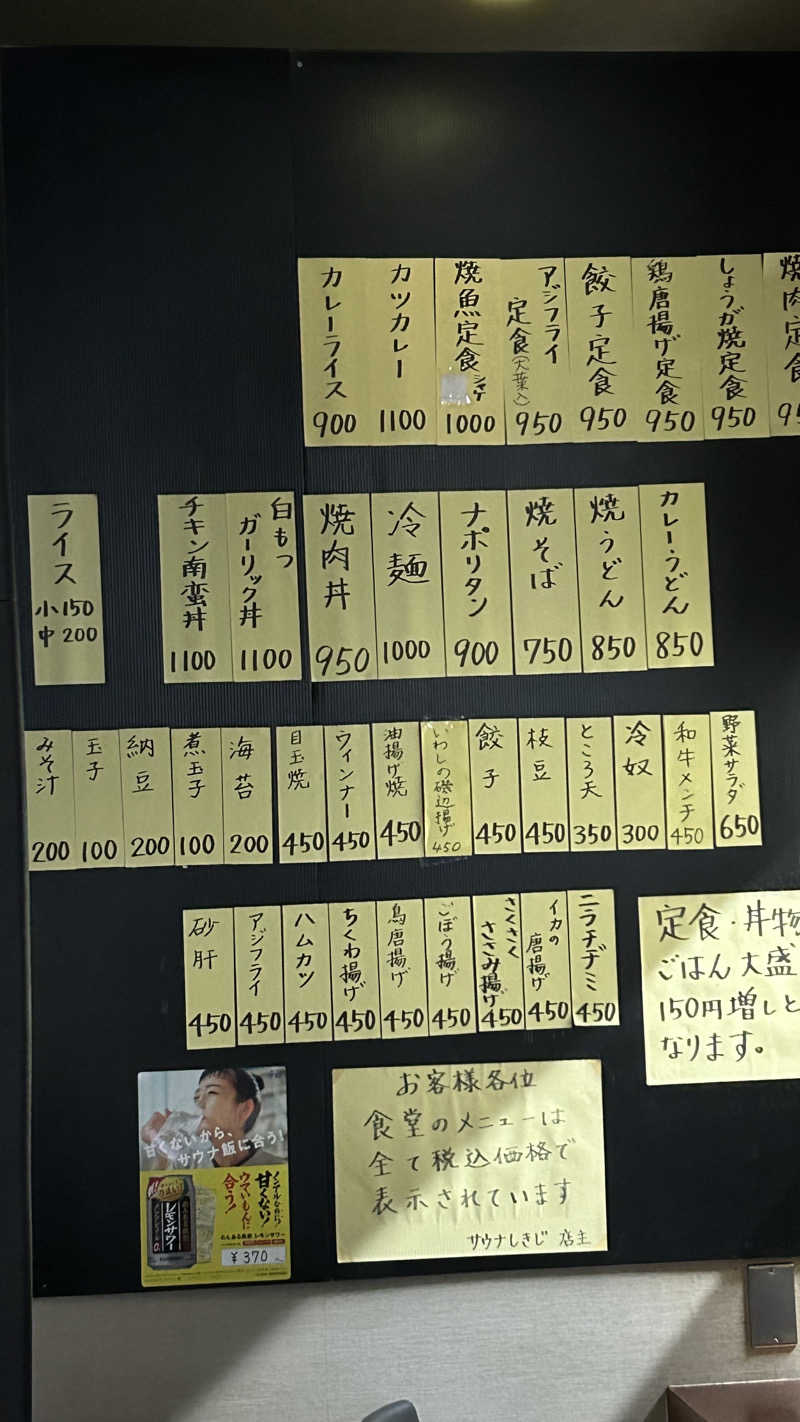 焼肉定食
しょうが焼定食 950
鶏唐揚げ定食 950
餃子定食 950
アジフライ定食(大葉入) 950
焼魚定食 シャケ 1000
カツカレー 1100
カレーライス 900
カレーうどん 850
焼うどん 850
焼そば 750
ナポリタン 900
冷麺 1000
焼肉丼 950
白もつガーリック丼 1100
チキン南蛮丼 1100
ライス 小150 中200
野菜サラダ 650
和牛メンチ 450
冷奴 300
ところ天 350
枝豆 450
餃子 450
いわしの磯辺揚げ 450
油揚げ焼 450
ウィンナー 450
目玉焼 450
海苔 200
煮玉子 100
納豆 200
玉子 100
みそ汁 200
ニラチヂミ 450
イカの唐揚げ 450
さくさくささみ揚げ 450
ごぼう揚げ 450
鳥唐揚げ 450
ちくわ揚げ 450
ハムカツ 450
アジフライ 450
砂肝 450
定食・丼物
ごはん大盛
150円増しと
なります。
お客様各位
食堂のメニューは
全て税込価格で
表示されています
サウナしきじ 店主
甘くないから、
サウナ飯に合う!
ノンアルなのに!
甘くない!
ウマいもんに
合う!
レモンサワー
のんある晩酌 レモンサワー
¥370